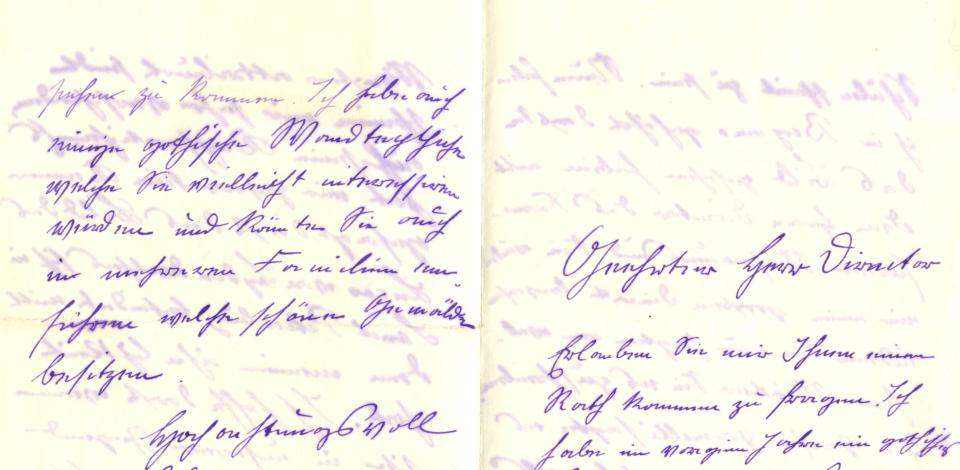 zu kommen. Ich habe auch
einige gothische Wandteppiche
welche Sie vielleicht interessiren
würden und könnte Sie auch
in mehreren Familien ein-
führen welche schöne Gemälde
besitzen.
Hochachtungsvoll
Geehrter Herr Director
Erlauben Sie mir Ihnen einen
Rath kommen zu fragen. Ich
habe im vorigen Jahre ein gothisches